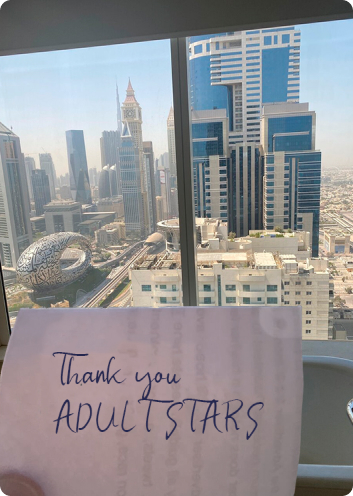 Thank you
ADULTSTARS